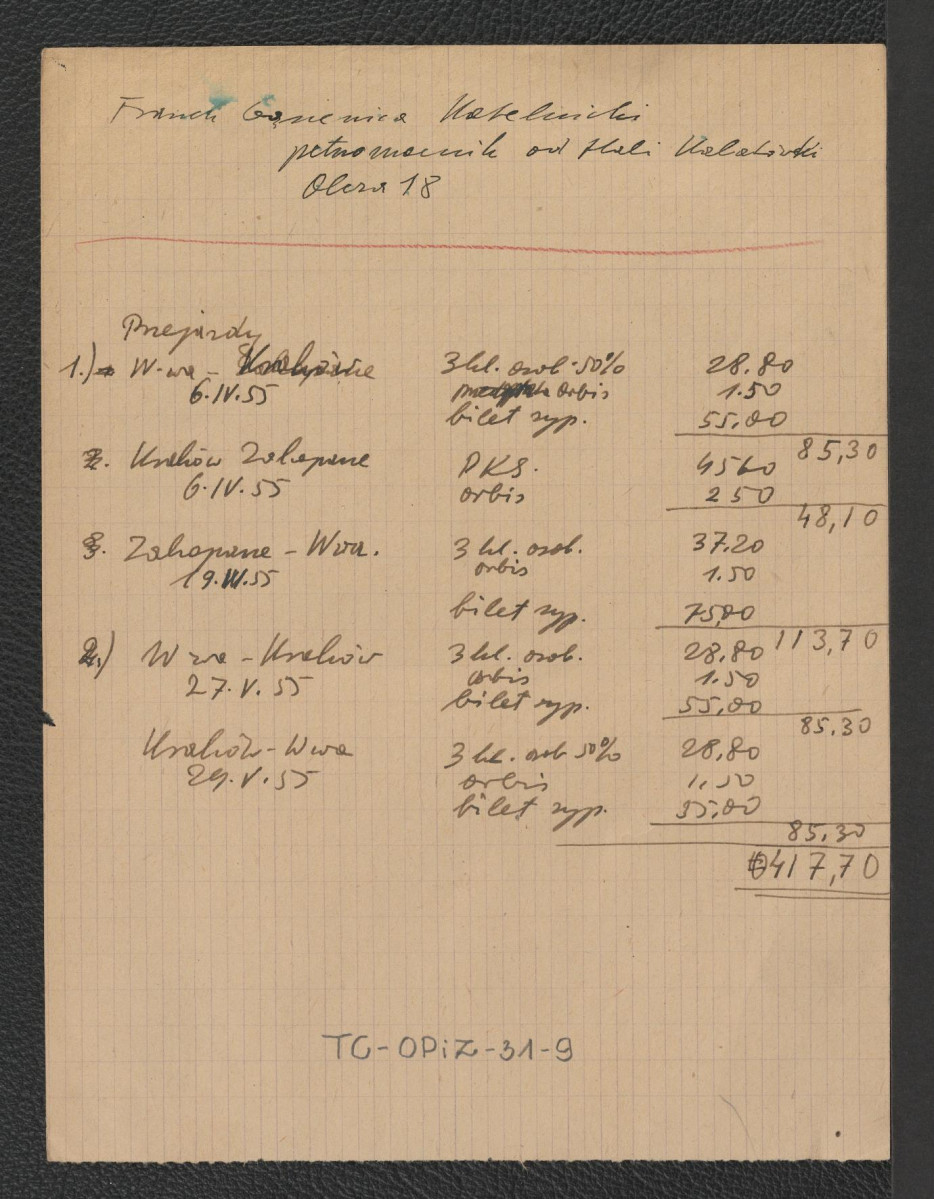 Franek Gąsienica Kotelnicki
pełnomocnik od Hali Kalatówki
Olcza 18
Przejazdy
1.) W-wa -
6.IV.55
3 kl. osob. 50% 28.80
orbis 1.50
bilet syp. 55,00
85,30
2. Kraków Zakopane PKS. 45 60
6.IV.55 orbis 2 50
48,10
3. Zakopane - Wwa. 3 kl. osob. 37.20
19.IV.55 orbis 1.50
bilet syp. 75,00
113,70
2.) Wwa - Kraków 3 kl. osob. 28,80
27.V.55 orbis 1.50
bilet syp. 55,00
85.30
Kraków - Wwa 3 kl. osob 50% 28,80
29.V.55 orbis 1,50
bilet syp. 55,00
85.30
417,70
TC-OPiZ-31-9